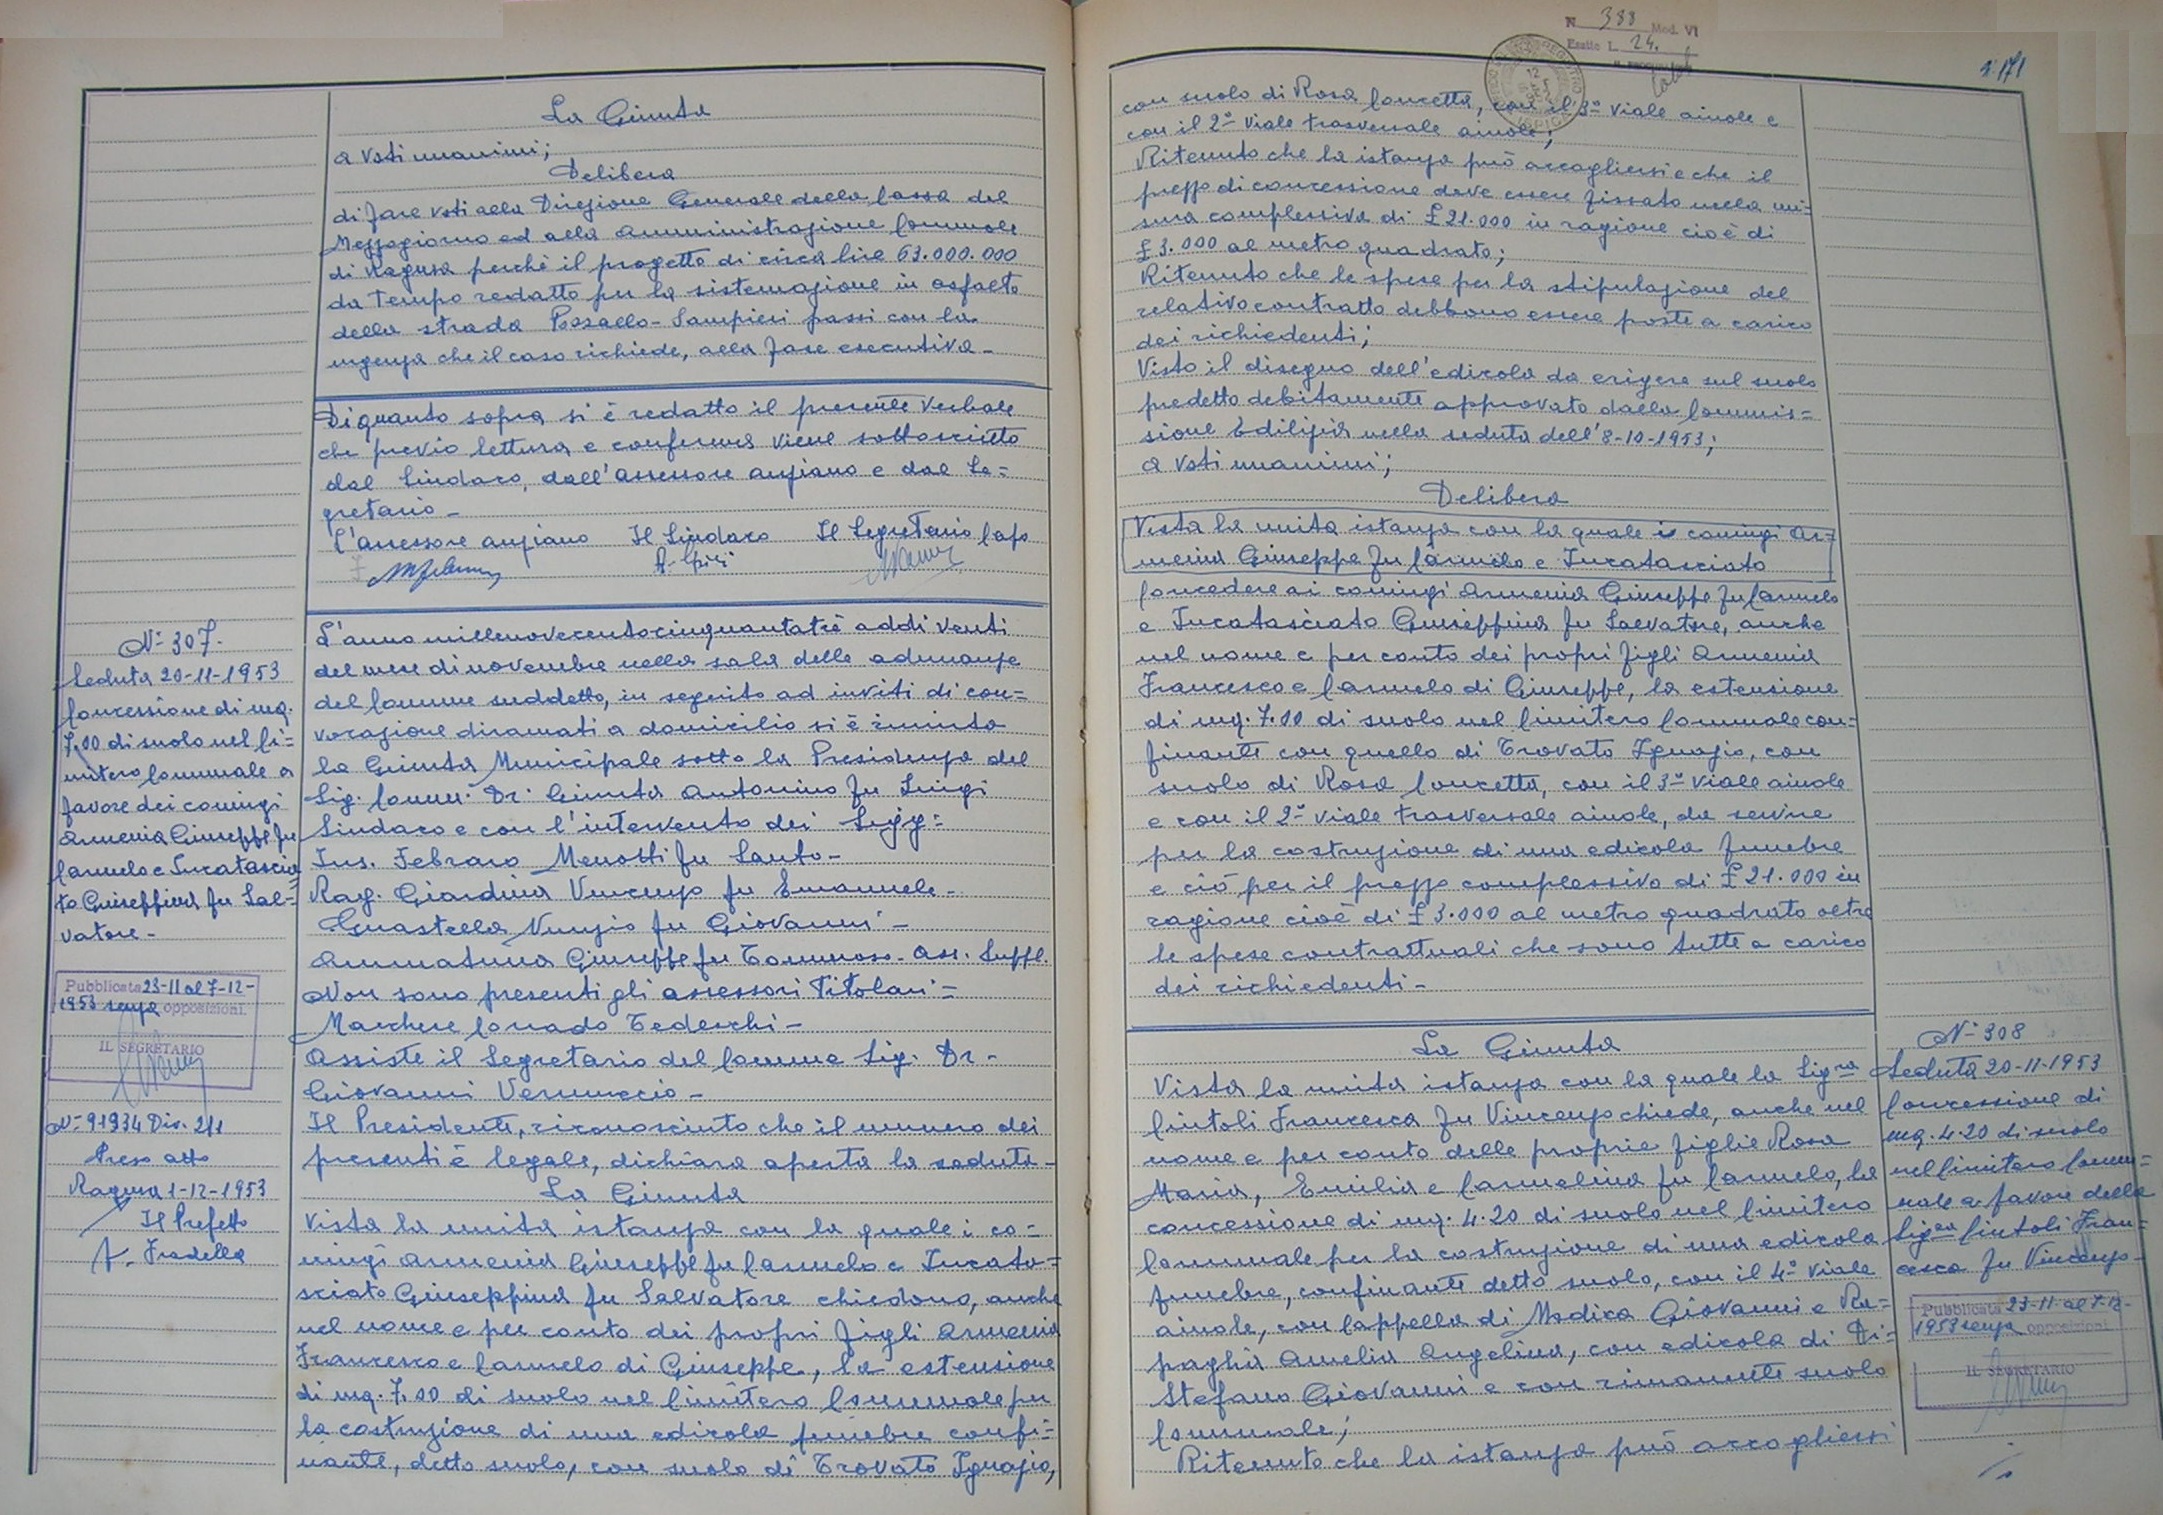 La Giunta
a voti unanimi;
Delibera
di fare voti alla Direzione Generale della Cassa del
Mezzogiorno ed alla Amministrazione Comunale
di Ragusa perchè il progetto di circa lire 63.000.000
da tempo redatto per la sistemazione in asfalto
della strada Pozzallo-Sampieri passi con la
urgenza che il caso richiede, alla fase esecutiva-
Di quanto sopra si è redatto il presente verbale
che previo lettura e conferma viene sottoscritto
dal Sindaco, dall'assessore anziano e dal Se=
gretario-
L'assessore anziano Il Sindaco Il Segretario Capo
N° 307.
Seduta 20-11-1953
Concessione di mq.
7.00 di suolo nel Ci=
mitero Comunale a
favore dei coniugi
Armenia Giuseppe fu
Carmelo e Lucatascia=
to Giuseppina fu Sal=
vatore-
Pubblicata 23-11 al 7-12-
1953 senza opposizioni.
IL SEGRETARIO
N° 91934 Div. 2/1
Preso atto
Ragusa 1-12-1953
Il Prefetto
f. Fradella
L'anno millenovecentocinquantatrè addì venti
del mese di novembre nella sala delle adunanze
del Comune suddetto, in seguito ad inviti di con=
vocazione diramati a domicilio si è riunita
la Giunta Municipale sotto la Presidenza del
Sig. Comm. Dr. Giunta Antonino fu Luigi
Sindaco e con l'intervento dei Sigg=
Ins. Febraro Menotti fu Santo-
Rag. Giardina Vincenzo fu Emanuele-
Guastella Nunzio fu Giovanni-
Ammatuna Giuseppe fu Tommaso- Ass. Suppl.
Non sono presenti gli assessori Titolari=
Marchese Corrado Tedeschi-
Assiste il Segretario del Comune Sig. Dr-
Giovanni Vernuccio-
Il Presidente, riconosciuto che il numero dei
presenti è legale, dichiara aperta la seduta-
La Giunta
Vista la unita istanza con la quale i co=
niugi Armenia Giuseppe fu Carmelo e Lucata=
sciato Giuseppina fu Salvatore chiedono, anche
nel nome e per conto dei propri figli Armenia
Francesco e Carmelo di Giuseppe, la estensione
di mq. 7.00 di suolo nel Cimitero Comunale per
la costruzione di una edicola funebre confi=
nante, detto suolo, con suolo di Trovato Ignazio,
N 388 Mod. VI
Esatte L. 24.
171
con suolo di Rosa Concetta, con il 3° viale aiuole e
con il 2° viale trasversale aiuole;
Ritenuto che la istanza può accogliersi e che il
prezzo di concessione deve essere fissato nella mi=
sura complessiva di £ 21.000 in ragione cioè di
£ 3.000 al metro quadrato;
Ritenuto che le spese per la stipulazione del
relativo contratto debbono essere poste a carico
dei richiedenti;
Visto il disegno dell'edicola da erigere sul suolo
predetto debitamente approvato dalla Commis=
sione Edilizia nella seduta dell'8-10-1953;
a voti unanimi;
Delibera
Vista la unita istanza con la quale i coniugi Ar=
menia Giuseppe fu Carmelo e Lucatasciato
Concedere ai coniugi Armenia Giuseppe fu Carmelo
e Lucatasciato Giuseppina fu Salvatore, anche
nel nome e per conto dei propri figli Armenia
Francesco e Carmelo di Giuseppe, la estensione
di mq. 7.00 di suolo nel Cimitero Comunale con=
finante con quello di Trovato Ignazio, con
suolo di Rosa Concetta, con il 3° viale aiuole
e con il 2° viale trasversale aiuole, da servire
per la costruzione di una edicola funebre
e ciò per il prezzo complessivo di £ 21.000 in
ragione cioè di £ 3.000 al metro quadrato oltre
le spese contrattuali che sono tutte a carico
dei richiedenti-
La Giunta
Vista la unita istanza con la quale la Sig.ra
Cintoli Francesca fu Vincenzo chiede, anche nel
nome e per conto delle proprie figlie Rosa
Maria, Emilia e Carmelina fu Carmelo, la
concessione di mq. 4.20 di suolo nel Cimitero
Comunale per la costruzione di una edicola
funebre, confinante detto suolo, con il 4° viale
aiuole, con Cappella di Modica Giovanni e Ra=
paghà Amelia Angelina, con edicola di Di=
Stefano Giovanni e con rimanente suolo
Comunale;
Ritenuto che la istanza può accogliersi
N° 308
Seduta 20-11-1953
Concessione di
mq. 4.20 di suolo
nel Cimitero Comu=
nale a favore della
Sig.ra Cintoli Fran=
cesca fu Vincenzo-
Pubblicata 23-11 al 7-12-
1953 senza opposizioni
IL SEGRETARIO